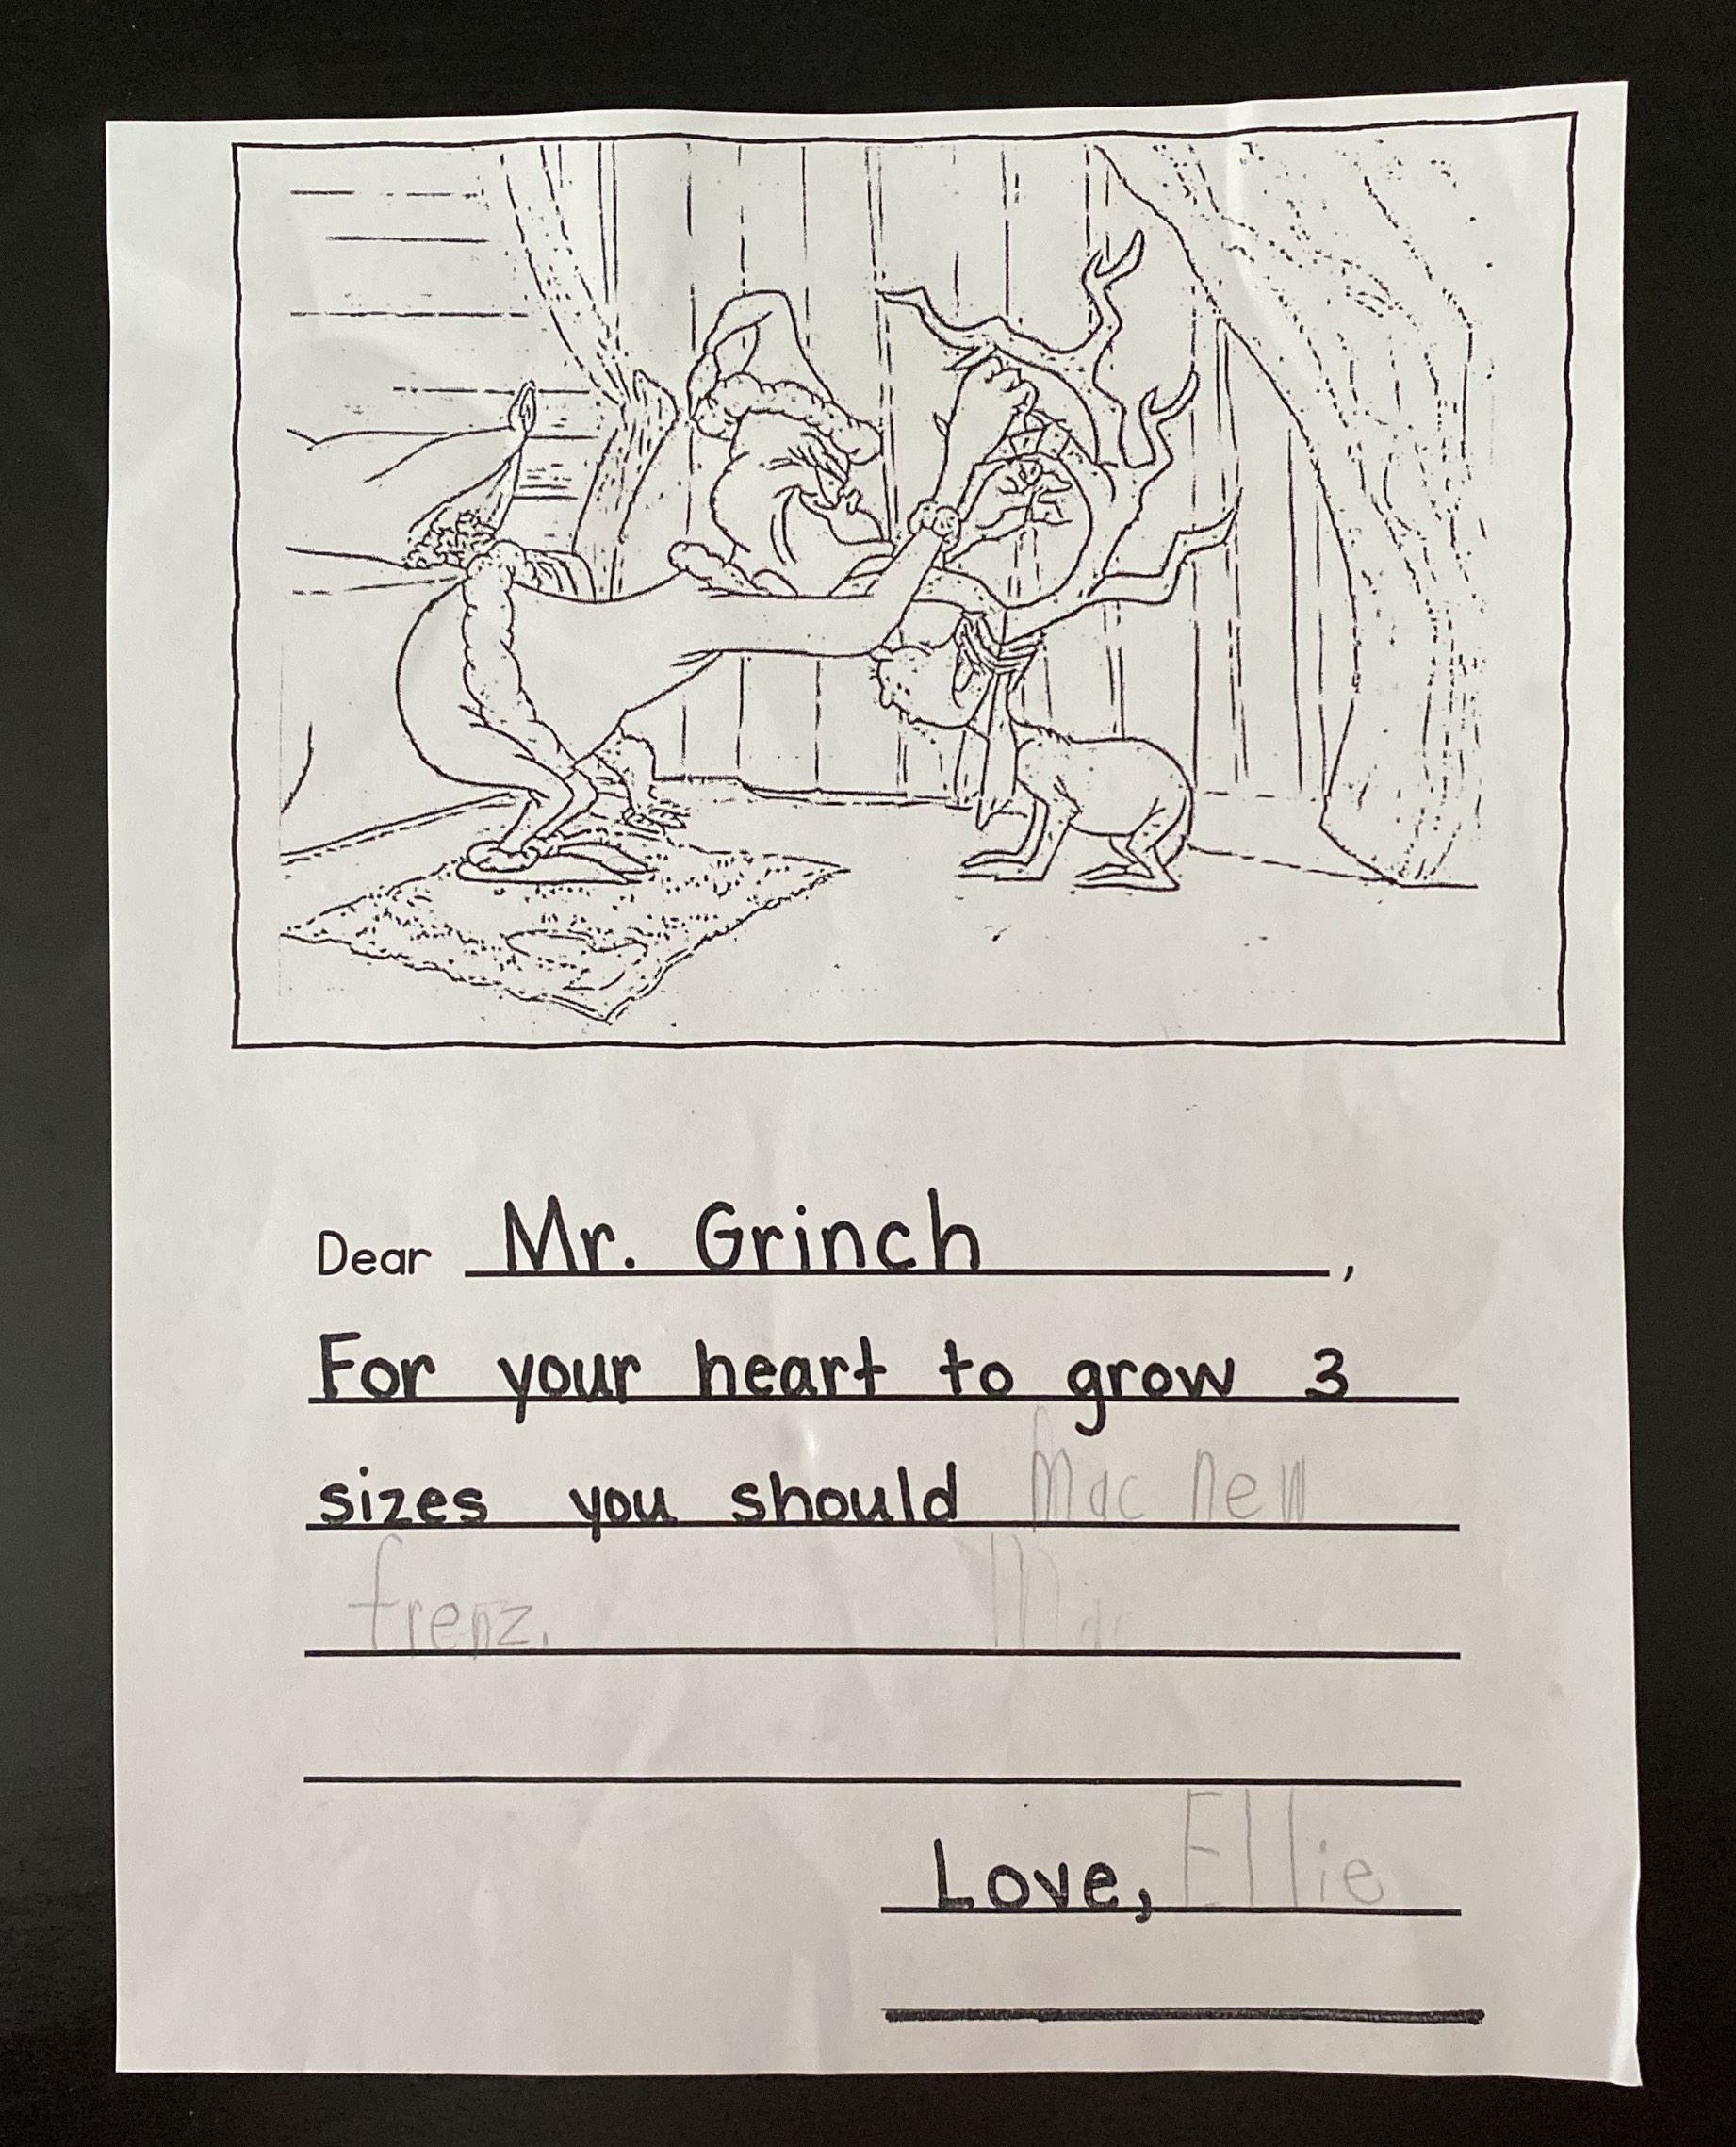 Dear Mr. Grinch,
For your heart to grow 3
sizes you should Mac new
frenz. Mac
Love, Ellie